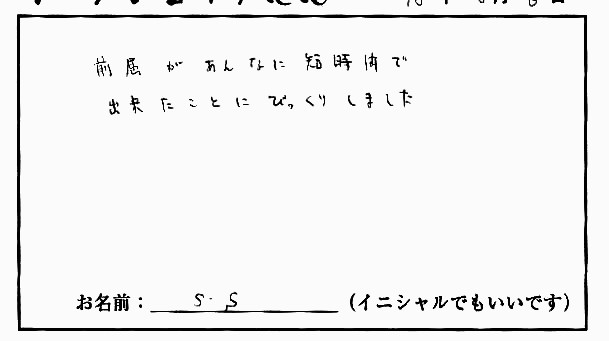 前屈があんなに短時間で
出来たことにびっくりしました
お名前：S・S（イニシャルでもいいです）